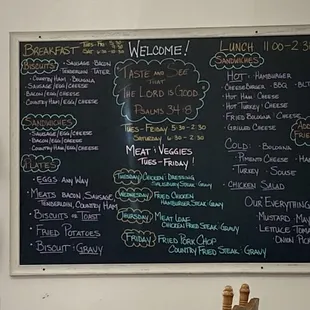 BREAKFAST TUES-FRI
BISCUITS • SAUSAGE • BACON
TENDERLOIN • TATER
• COUNTRY HAM • BOLOGNA
• SAUSAGE/EGG/CHEESE
BACON/EGG/CHEESE
COUNTRY HAM/EGG/CHEESE
SANDWICHES
• SAUSAGE/EGG/CHEESE
• BACON/EGG/CHEESE
• COUNTRY HAM/EGG/CHEESE
PLATES
• EGGS ANY WAY
• MEATS BACON, SAUSAGE,
TENDERLOIN, COUNTRY HAM
• BISCUITS OR TOAST
• FRIED POTATOES
• BISCUIT & GRAVY
WELCOME!
TASTE AND SEE
THAT
THE LORD IS GOOD
PSALMS 34:8
TUES-FRIDAY 5:30-2:30
SATURDAY 6:30-2:30
MEAT & VEGGIES
TUES-FRIDAY!
TUESDAY CHICKEN & DRESSING
SALISBURY STEAK & GRAVY
WEDNESDAY FRIED CHICKEN
HAMBURGER STEAK & GRAVY
THURSDAY MEAT LOAF
CHICKEN FRIED STEAK & GRAVY
FRIDAY FRIED PORK CHOP
COUNTRY FRIED STEAK & GRAVY
LUNCH 11:00-2:3
SANDWICHES
HOT: • HAMBURGER
• CHEESEBURGER • BBQ • BLT
• HOT HAM & CHEESE
• HOT TURKEY & CHEESE
• FRIED BOLOGNA & CHEESE
• GRILLED CHEESE
FRIE
COLD: • BOLOGNA
• PIMENTO CHEESE • HAM
• TURKEY • SOUSE
• CHICKEN SALAD
OUR EVERYTHING
MUSTARD MAY
LETTUCE TOMA
ONION